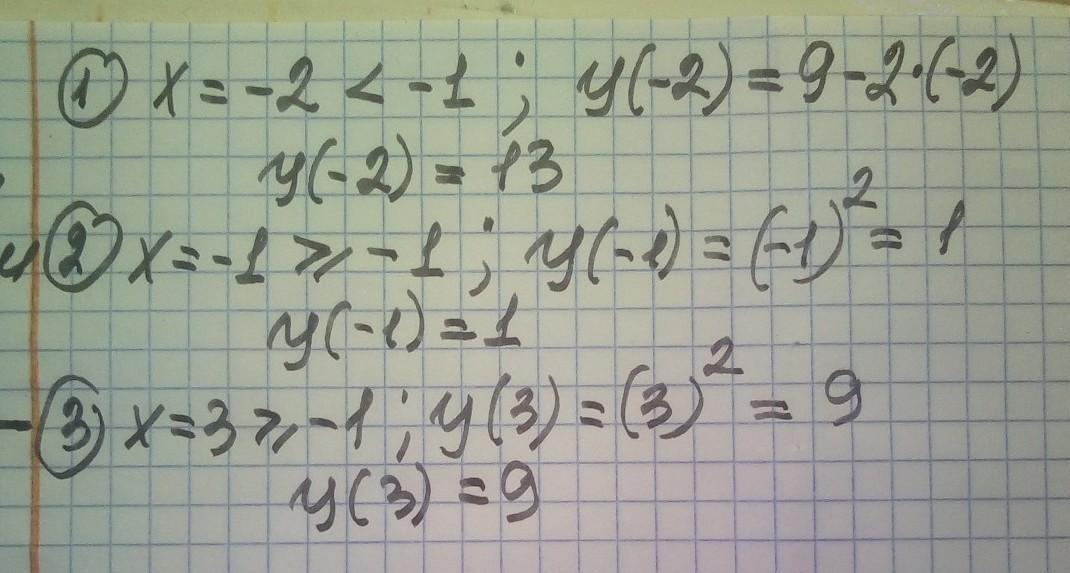 ① x = -2 < -1 ; y(-2) = 9 - 2·(-2)
y(-2) = 13
② x = -1 ⩾ -1 ; y(-1) = (-1)² = 1
y(-1) = 1
③ x = 3 ⩾ -1 ; y(3) = (3)² = 9
y(3) = 9